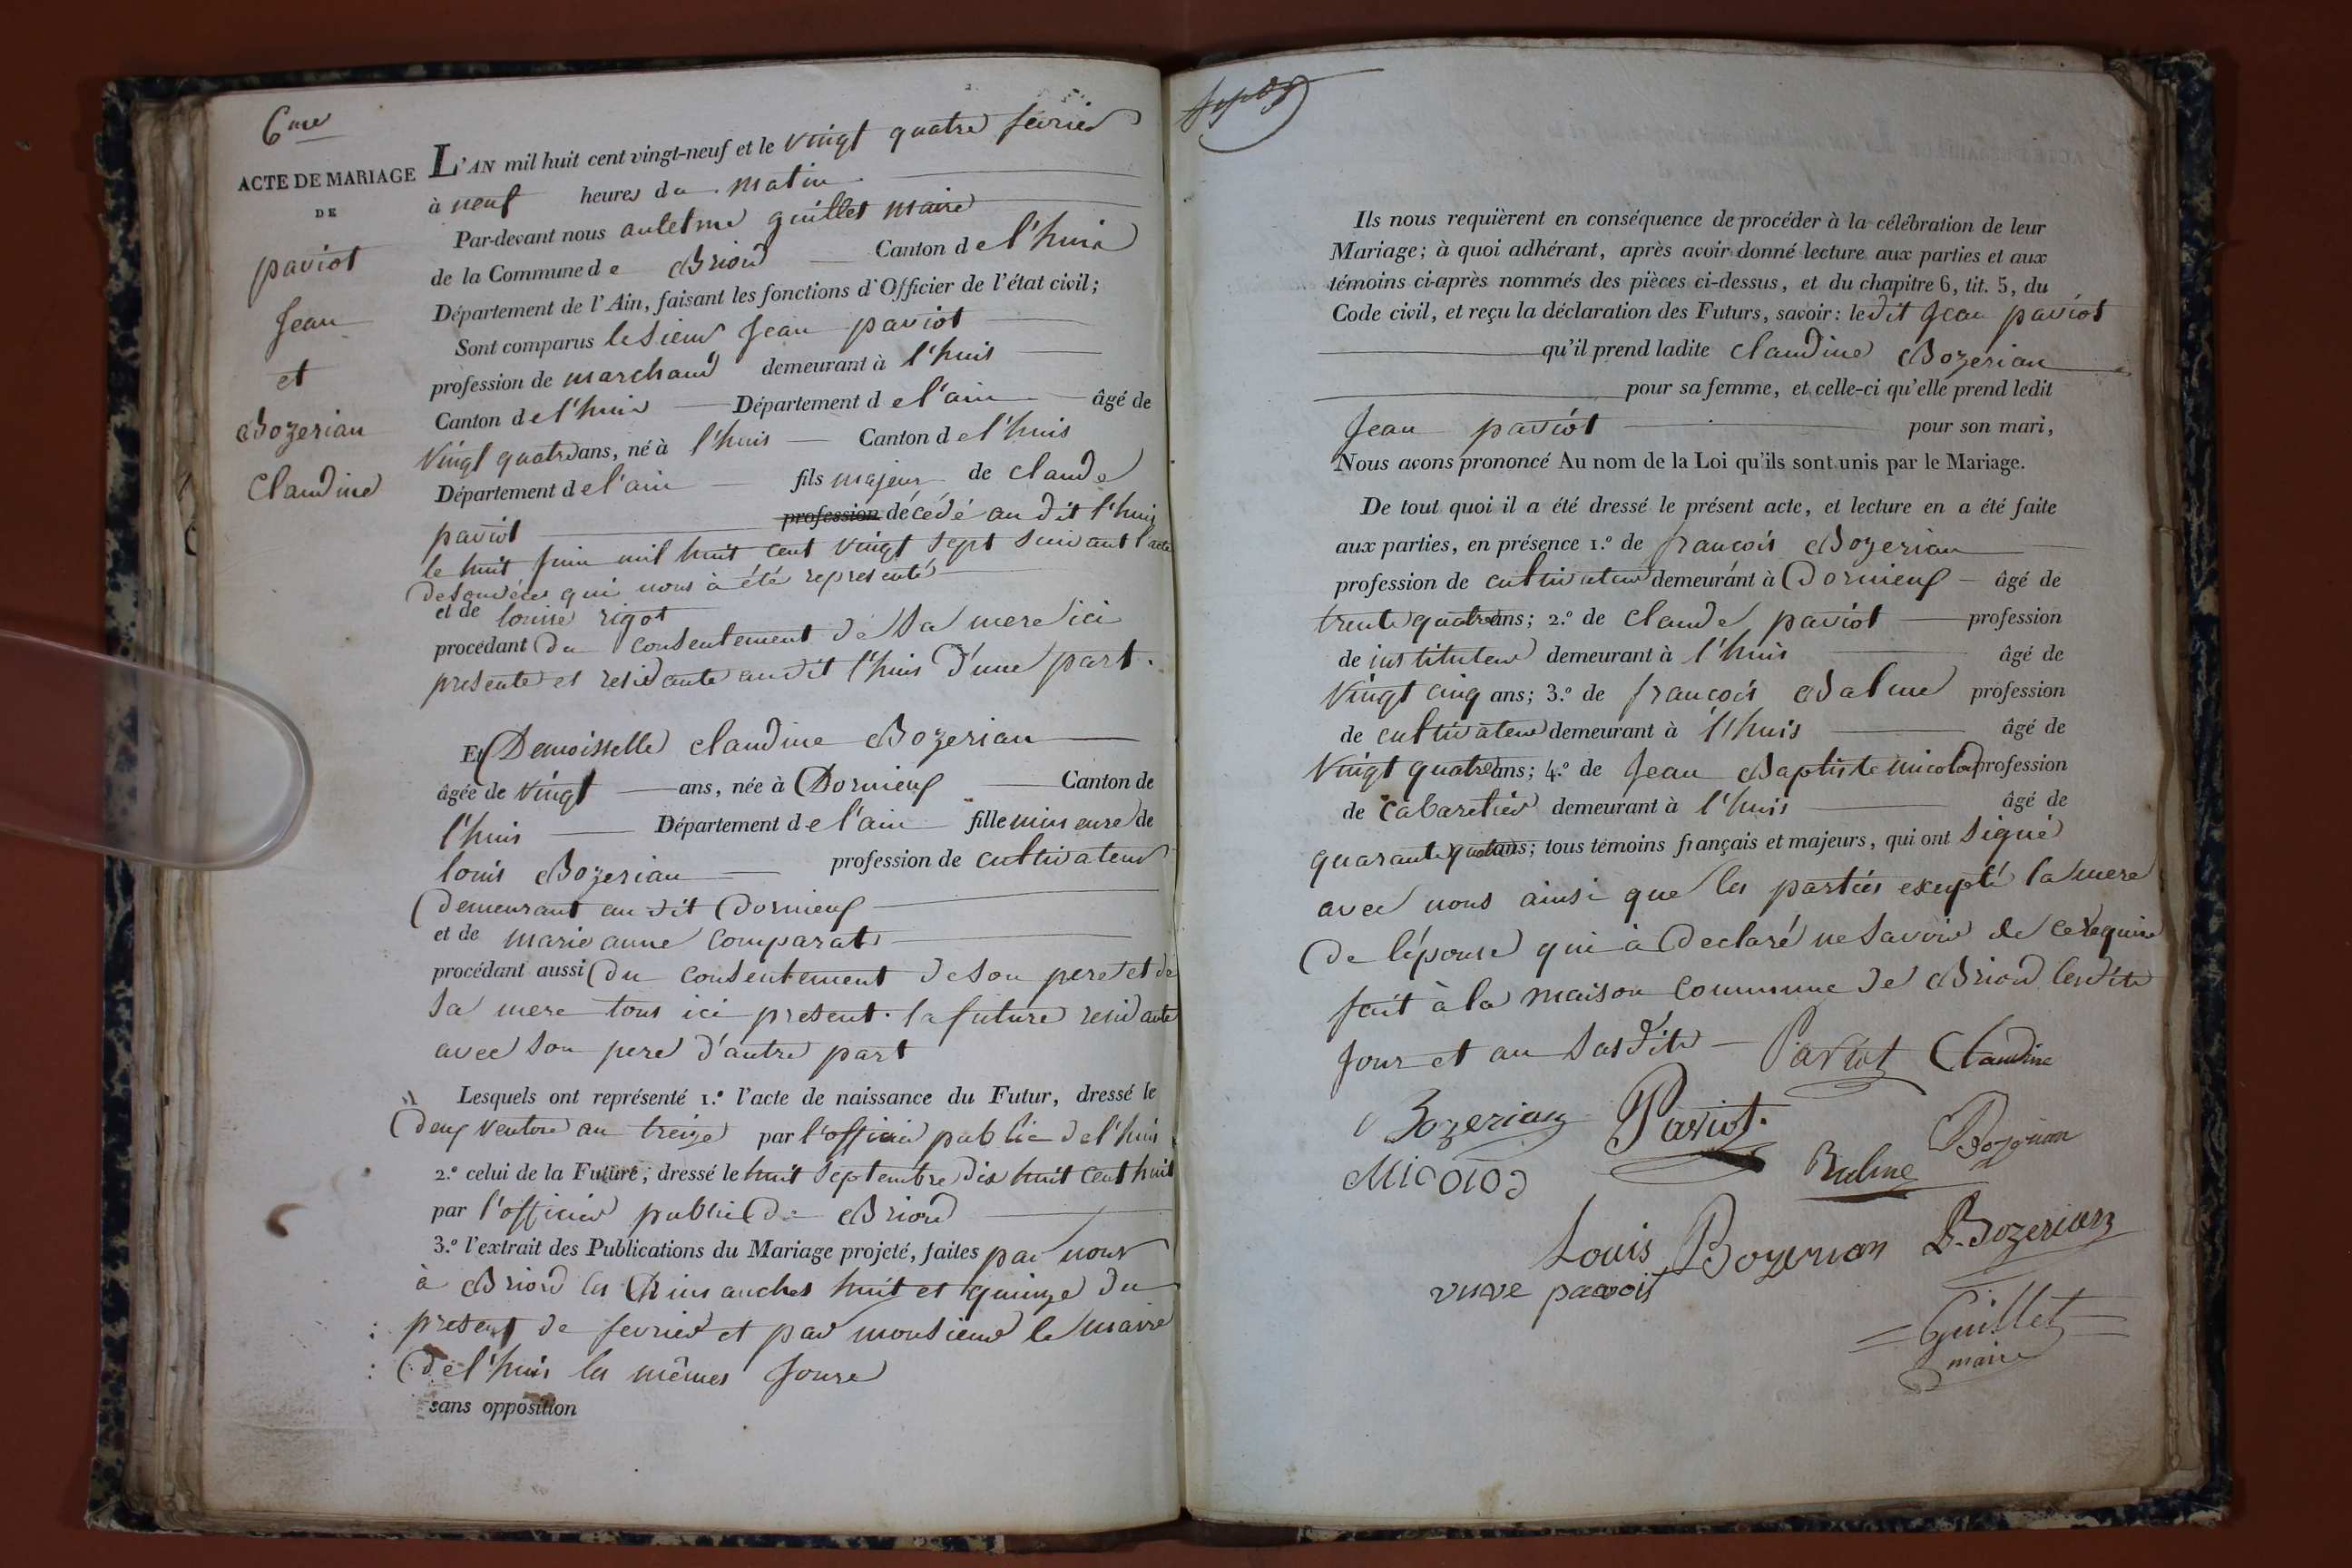 6me
ACTE DE MARIAGE
DE
paviot
Jean
et
Bozerian
Claudine
L'AN mil huit cent vingt-neuf et le vingt quatre février
à neuf heures du matin
Par-devant nous antelme guillet maire
de la Commune de Briord Canton de l'huis
Département de l'Ain, faisant les fonctions d'Officier de l'état civil;
Sont comparus le sieur Jean paviot
profession de marchand demeurant à l'huis
Canton de l'huis Département de l'ain âgé de
vingt quatre ans, né à l'huis Canton de l'huis
Département de l'ain fils majeur de claude
paviot profession décédé au dit l'huis
le huit juin mil huit cent vingt sept suivant l'acte
de son décès qui nous à été representé
et de louise rigot
procédant du consentement de sa mere ici
presente et residante audit l'huis d'une part.
Et Demoisselle claudine Bozerian
âgée de vingt ans, née à Dornieux Canton de
l'huis Département de l'ain fille mineure de
louis Bozerian profession de cultivateur
demeurant au dit Dornieux
et de marie anne comparat
procédant aussi du consentement de son pere et de
sa mere tous ici present. la future residante
avec son pere d'autre part
Lesquels ont représenté 1.º l'acte de naissance du Futur, dressé le
deux ventose an treize par l'officier public de l'huis
2.º celui de la Future; dressé le huit septembre dix huit cent huit
par l'officier public de Briord
3.º l'extrait des Publications du Mariage projeté, faites par nous
à Briord les Dimanches huit et quinze du
present de fevrier et par monsieur le maire
de l'huis les mêmes Jours
sans opposition
Ils nous requièrent en conséquence de procéder à la célébration de leur
Mariage; à quoi adhérant, après avoir donné lecture aux parties et aux
témoins ci-après nommés des pièces ci-dessus, et du chapitre 6, tit. 5, du
Code civil, et reçu la déclaration des Futurs, savoir: le dit Jean paviot
qu'il prend ladite claudine Bozerian
pour sa femme, et celle-ci qu'elle prend ledit
Jean paviot pour son mari,
Nous avons prononcé Au nom de la Loi qu'ils sont unis par le Mariage.
De tout quoi il a été dressé le présent acte, et lecture en a été faite
aux parties, en présence 1.º de francois Bozerian
profession de cultivateur demeurant à Dornieux âgé de
trente quatre ans; 2.º de claude paviot profession
de instituteur demeurant à l'huis âgé de
vingt cinq ans; 3.º de francois Balme profession
de cultivateur demeurant à l'huis âgé de
vingt quatre ans; 4.º de Jean Baptiste micolod profession
de cabaretier demeurant à l'huis âgé de
quarante quatre ans; tous témoins français et majeurs, qui ont signé
avec nous ainsi que les parties exepté la mere
de l'épouse qui à declaré ne savoir de ce requise
fait à la maison commune de Briord lesdits
Jour et an susdits Paviot Claudine
Bozerian Paviot. Bozerian
Micolod Balme
Louis Bozerian B. Bozerian
veuve pavoit
Guillet
maire